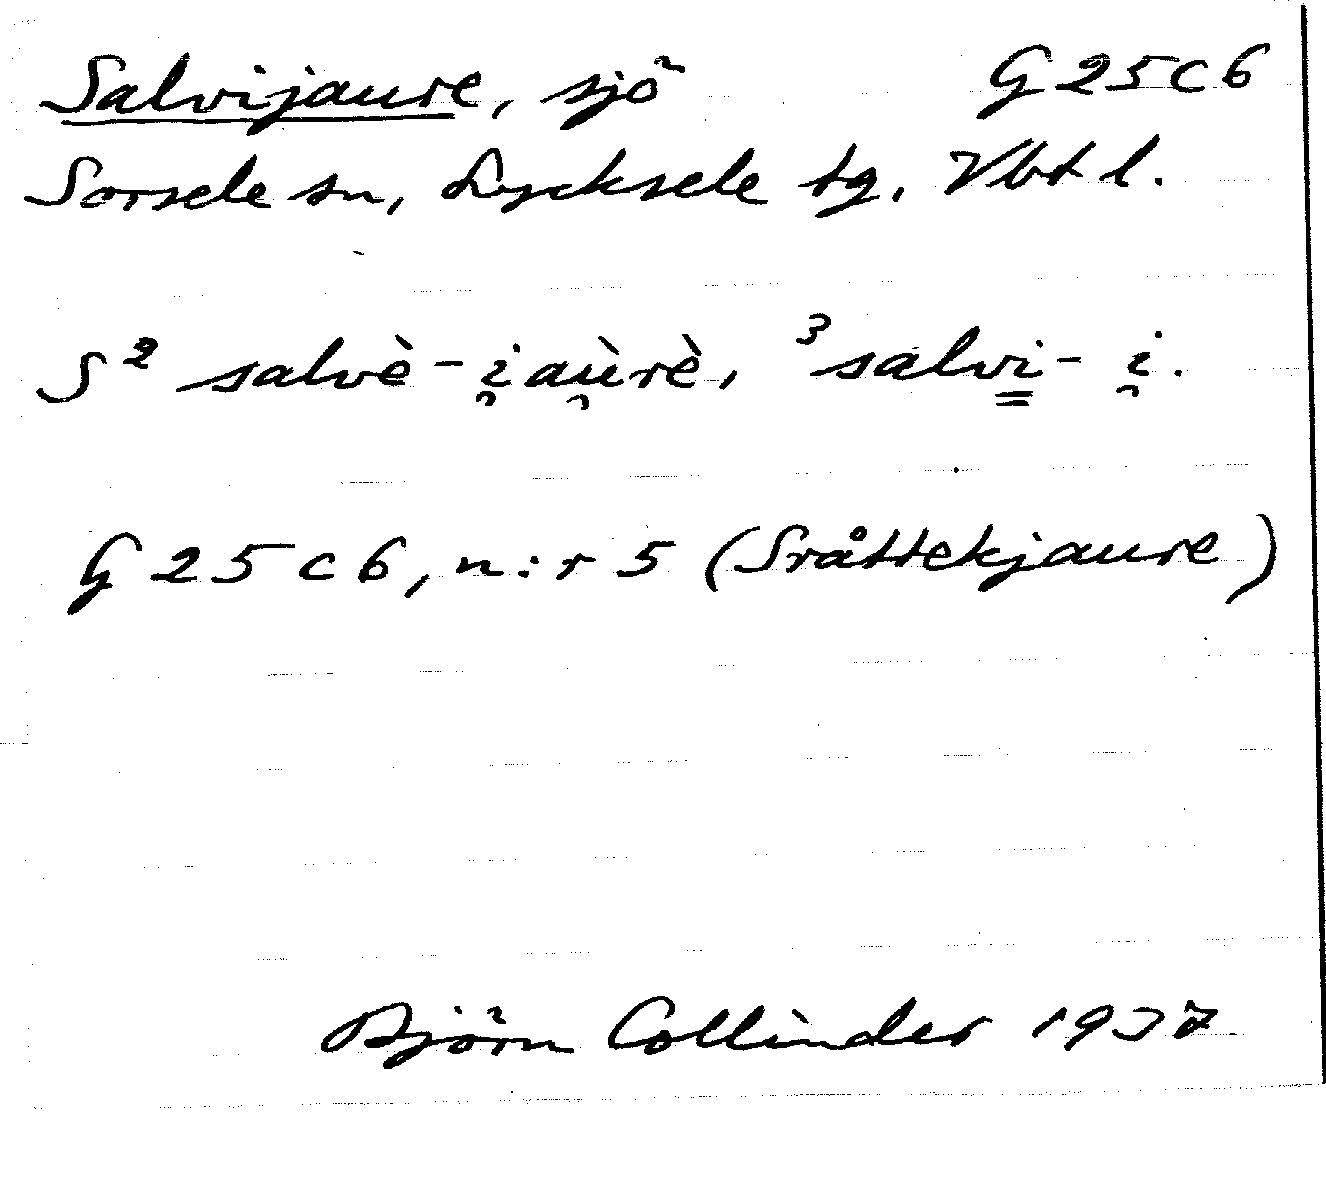 Salvijaure, sjö G25c6
Sorsele sn, Lycksele tg. Vbtl.
S ² salvè-i̯au̯̇rè, ³salvi̳- i̯.
G25c6, n:r 5 (Sråttekjaure)
Björn Collinder 1937